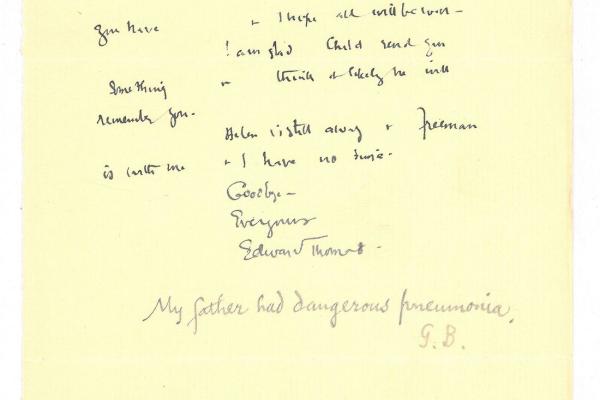 you have & I hope all will be well –
I am glad Child send you
Something & think it likely he will
remember you.
Helen is still away & Freeman
is with me & I have no time.
Goodbye –
Ever yours
Edward Thomas.
My father had dangerous pneumonia.
G.B.